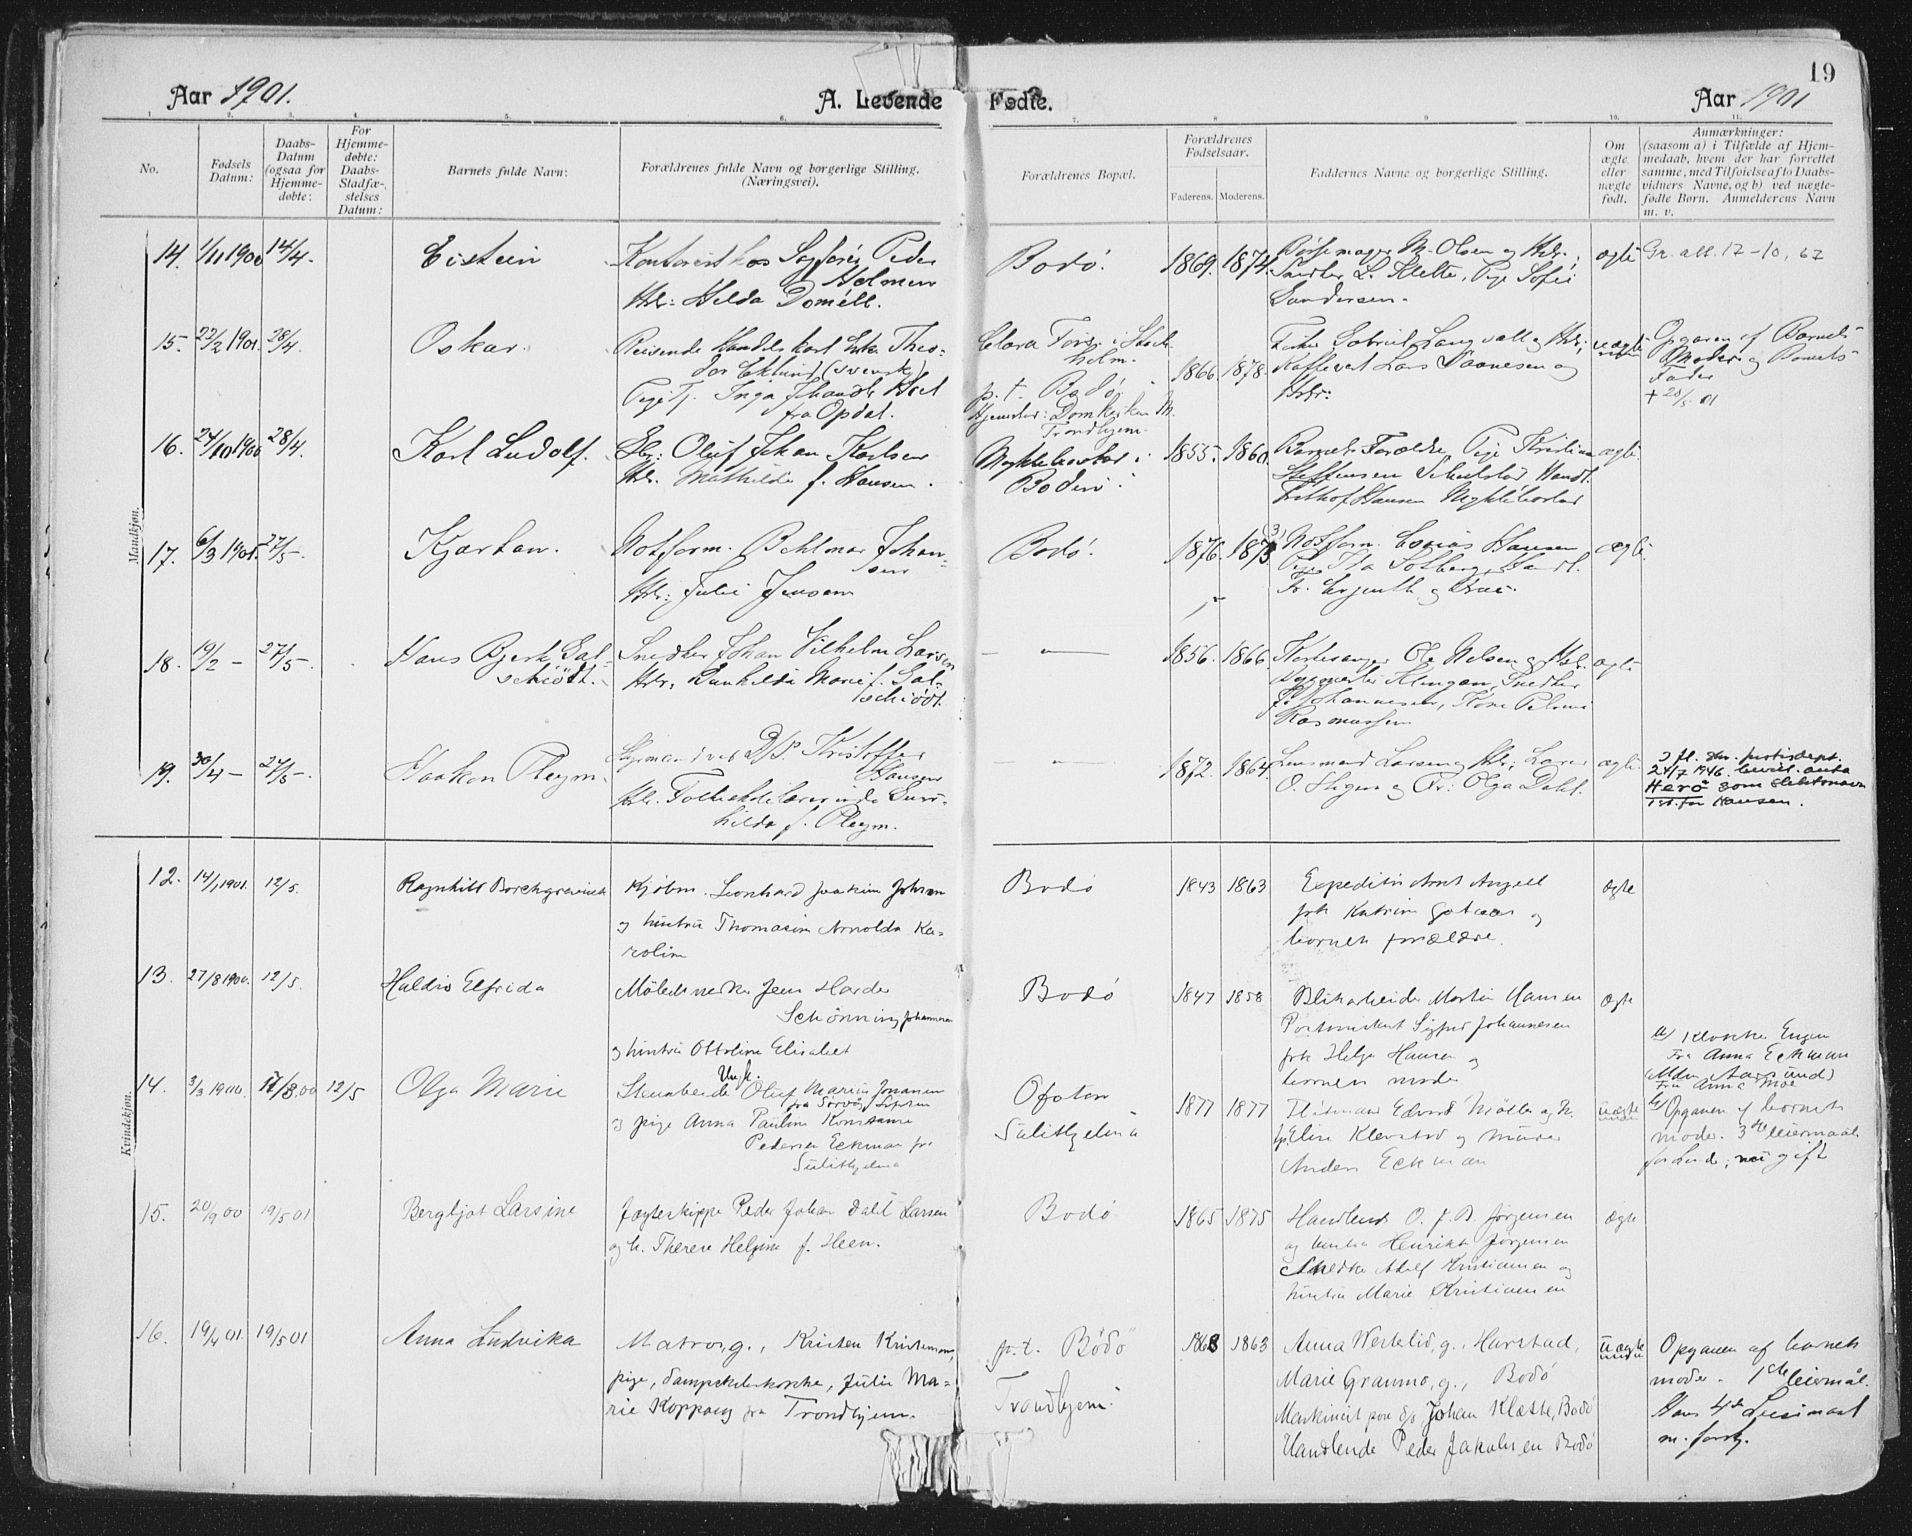 Aar 1901.
A. Levende Fødte.
Aar 1901
19
No.
Fødsels Datum:
Daabs-Datum (ogsaa for Hjemmedøbte:
For Hjemmedøbte: Daabs-Stadfæstelses Datum:
Barnets fulde Navn:
Forældrenes fulde Navn og borgerlige Stilling. (Næringsvei).
Forældrenes Bopæl.
Forældrenes Fødselsaar.
Faderens. Moderens.
Faddernes Navne og borgerlige Stilling.
Om ægte eller nægte født.
Anmærkninger:
(saasom a) i Tilfælde af Hjem-
medaab, hvem der har forrettet
samme, med Tilføielse af to Daabs-
vidners Navne, og b) ved nægte-
fødte Børn. Anmelderens Navn
m. v.
Mandkjøn.
14. 1/11 1900 14/4. Eistein
Kontorist hos Sagfører Peder
Holmen
Htr: Hilda Doméll.
Bodø. 1869. 1874.
Bøssemager M. Olsen og Htr.,
Snedker L. Klette, Pige Sofie
Gundersen.
ægte Gr. att. 17-10, 62
15. 22/2 1901. 28/4. Oskar.
Reisende Handelskort Erik Theo-
dor Eklund (svensk)
fra Opdal.
Clara Fors. i Stock-
holm.
p.t. Bodø
Trondhjem.
1866. 1878.
Kaffevert Lars Daanesen og
Htr:
uægte
Opgaven af Barnets
Moder og Barnets
Fader
+ 20/5 01
16. 24/10 1900 28/4. Karl Ludolf.
Gbr: Oluf Johan Karlsen
Htr. Mathilde f. Hansen.
Myklebostad i
Bodin.
1855. 1860.
Barnets Forældre, Pige Kristine
Steffensen Seines
Hansen Myklebostad
ægte.
17. 6/3 1901. 27/5-. Kjartan.
Notform. Johan-
sen
Htr: Julie Jensen
Bodø. 1876. 1873 (3)
Notform. Hansen
Pige Solberg, Handl.
ægte.
18. 19/2 - 27/5-. Hans Bjerk Gal-
schiødt.
Snedker Johan Vilhelm Larsen
Htr. Gunhilda Marie f. Gal-
schiødt.
- — 1856. 1866.
Kirkesanger Ole Nilsen og Htr.
Klingan, Snedker
Johannesen, Kone Petrine
Rasmussen
ægte
19. 30/4 - 27/5-. Haakon Pleym.
Styrmand ved D/S. Kristoffer
Hansen
Htr. Folkeskolelærerinde Gun-
hilda f. Pleym.
— 1872. 1864.
Lensmand Larsen og Htr; Lærer
O. Stigen og Fr: Olga Dahl.
ægte.
J fl. skr. justisdept.
24/7 1946 bevil. anta
Herø som slektsnavn
ist. for Hansen.
Kvindekjøn.
12. 14/1 1901. 12/5. Ragnhild Borchgrevink
Kjøbm. Leonhard Joakim Johnsen
og hustru Thomasine Arnolda Ka-
roline
Bodø 1843 1863
Expeditør Arnt Angell
frk Katrine Gotaas og
barnets forældre.
ægte
13. 27/8 1900. 12/5. Haldis Elfrida
Møbelsnekker Jens Harder
Schønning Johannesen
og hustru Ottoline Elisabet
Bodø 1847 1858
Blikarbeider Martin Hansen
Postassistent Sigfred Johannesen
frk Helga Hansen og
barnets moder
ægte
14. 3/3 1900. 17/3.00 12/5 Olga Marie
Ungk.
Stenarbeider Oluf Marius Jonassen
og pige Anna Pauline Konstanse
Pedersen Eckman fra
Sulithjelma
Ofoten
Sulithjelma
1877 1877
Edvard Møller og h.
Elise Klevstad og murer
Anders Eckman
uægte
a/ Klokker Engen
Fru Anna Eckman
Fru Anna Moe
b/ Opgaven af barnets
moder. 3die leiermaal
for hende; nu gift
15. 20/9 00 19/5 01 Bergljot Larsine
Jægteskipper Peder Johan Dahl Larsen
og h. Therese Helfine f. Heen.
Bodø 1865 1875
Handlende O. J. B. Jørgensen
og hustru Henrikke Jørgensen
Snedker Adolf Kristiansen og
hustru Marie Kristiansen
ægte
16. 19/4 01. 19/5 01 Anna Ludvika
Matros, g., Kristen Kristensen,
pige, dampskibskokke, Julie Ma-
rie Koppang fra Trondhjem.
p.t. Bodø
Trondhjem.
1868 1863
Anna Westelid, g., Harstad,
Marie Granmo, g., Bodø
Maskinist paa d/s Johan Klætte, Bodø
Handlende Peder Jakobsen Bodø
uægte
Opgaven af barnets
moder. 1ste leiermål.
Hans 4de Leiermaal
m. forsk.